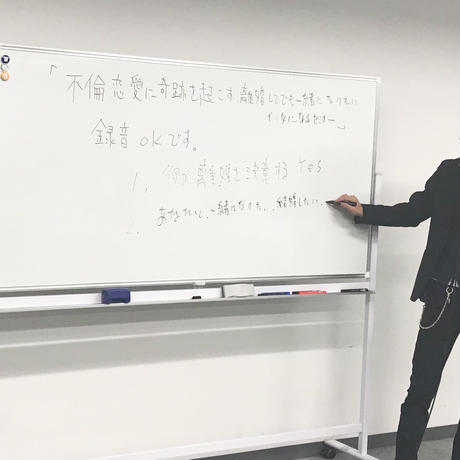 「不倫恋愛に奇跡を起こす離婚してでも一緒になりたい
イイ女になるセミナー」
録音okです。
1、彼が離婚を決意する Yes
2. あなたと、一緒になりたい、結婚したい、